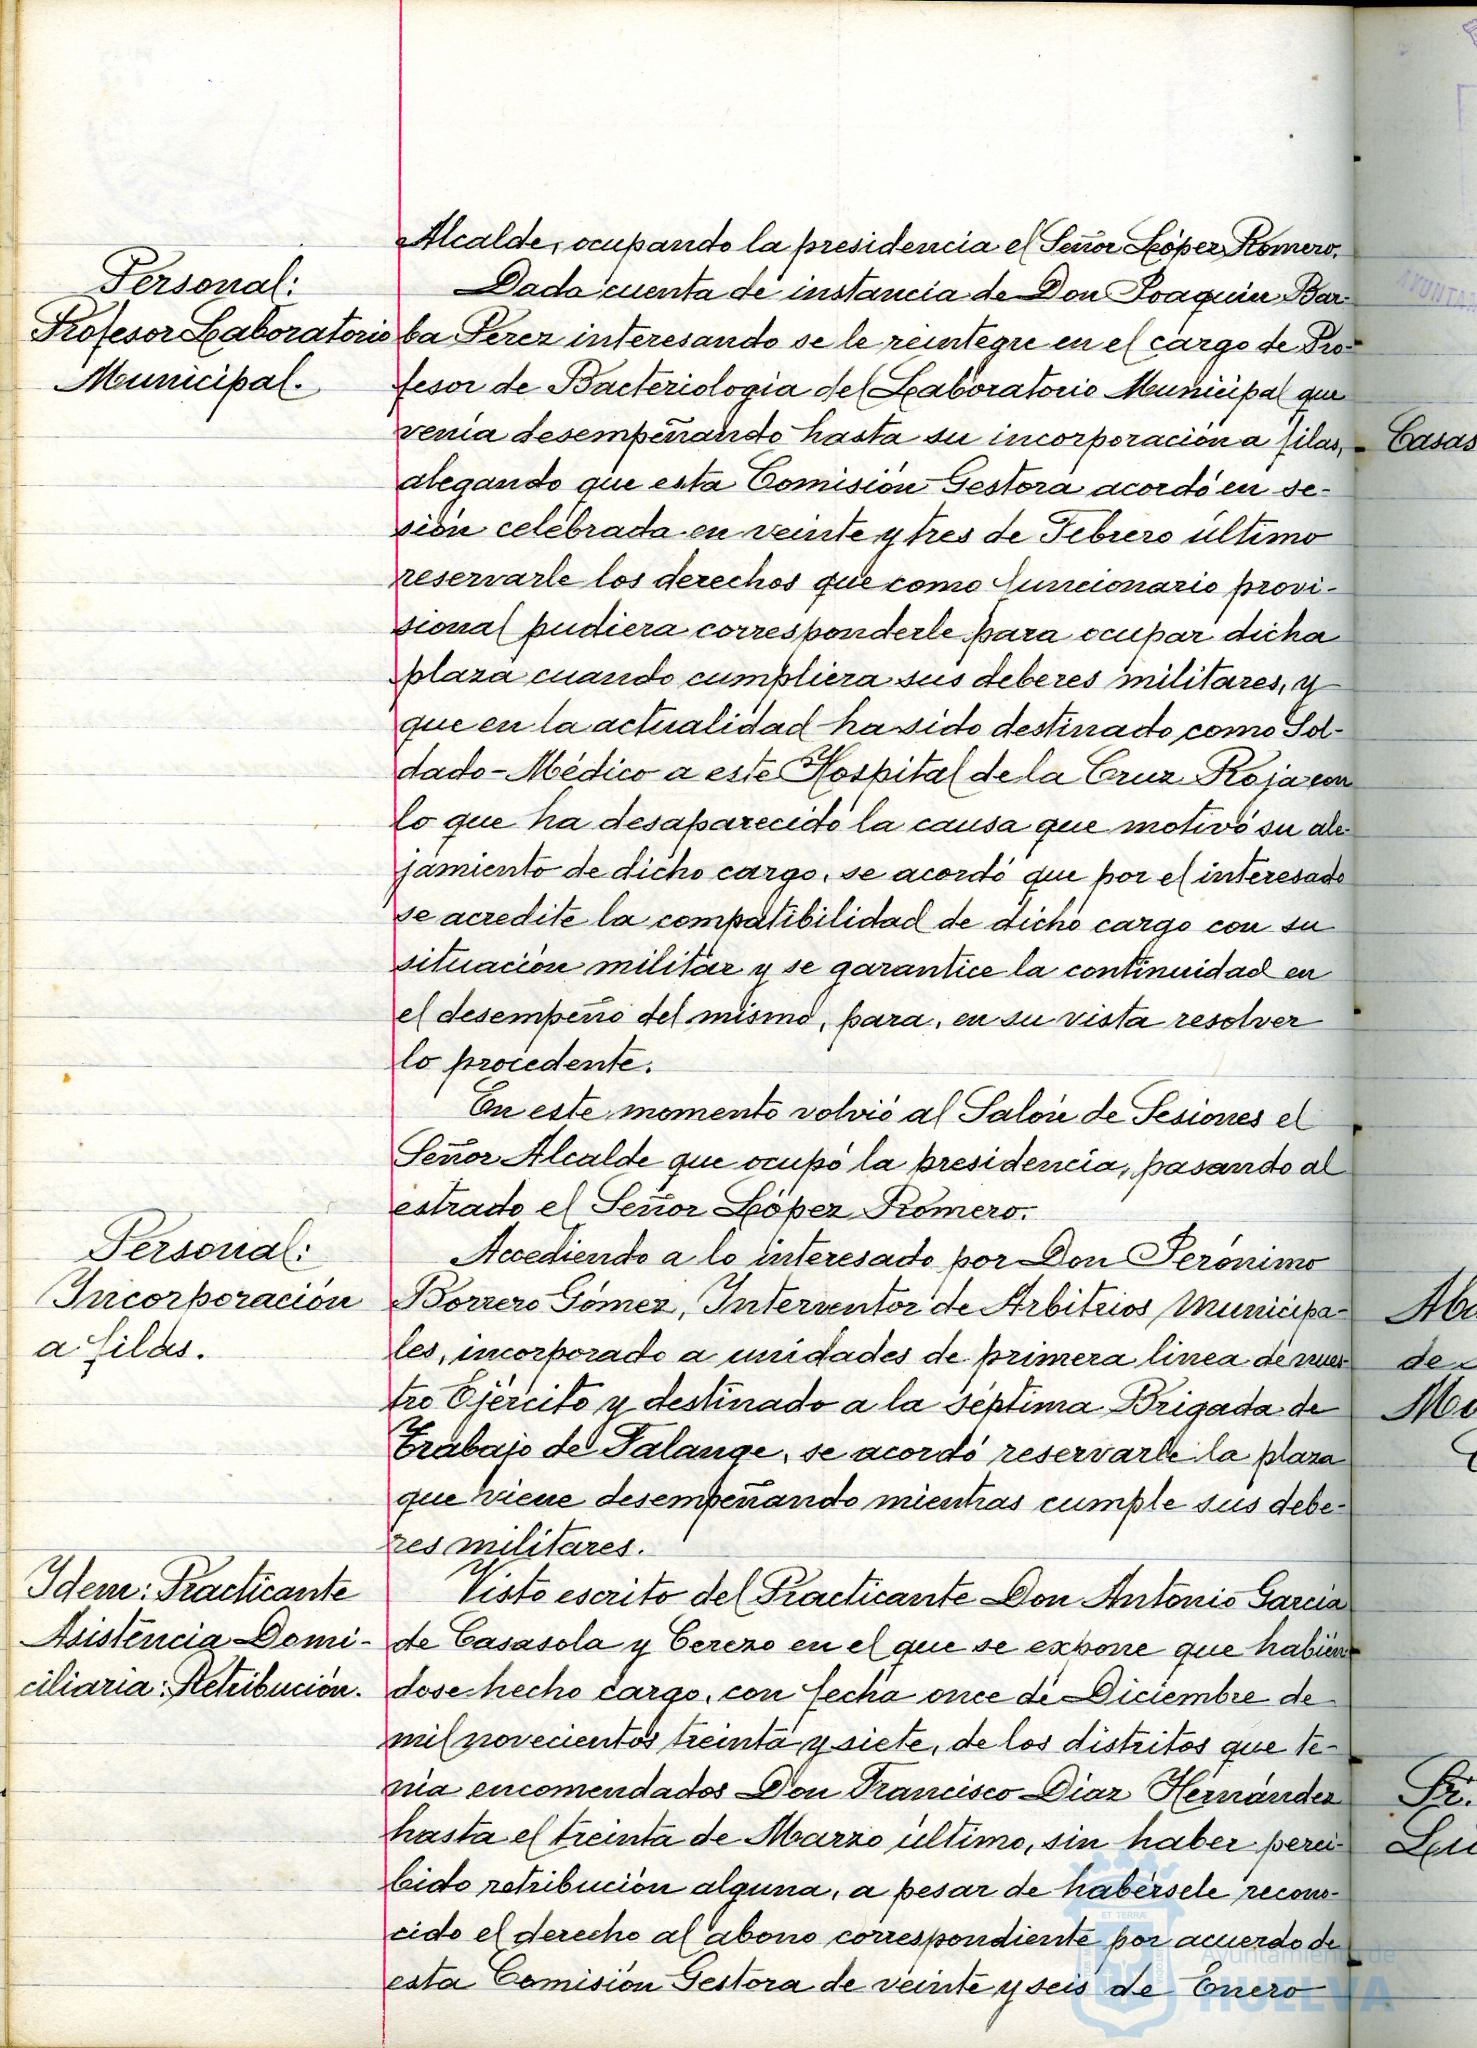 Alcalde, ocupando la presidencia el Señor López Romero.
Personal:
Profesor Laboratorio
Municipal.
Dada cuenta de instancia de Don Joaquin Bar-
ba Perez interesando se le reintegre en el cargo de Pro-
fesor de Bacteriologia del Laboratorio Municipal que
venía desempeñando hasta su incorporación a filas,
alegando que esta Comisión Gestora acordó en se-
sión celebrada en veinte y tres de Febrero último
reservarle los derechos que como funcionario provi-
sional pudiera corresponderle para ocupar dicha
plaza cuando cumpliera sus deberes militares, y
que en la actualidad ha sido destinado como Sol-
dado-Médico a este Hospital de la Cruz Roja con
lo que ha desaparecido la causa que motivó su ale-
jamiento de dicho cargo, se acordó que por el interesado
se acredite la compatibilidad de dicho cargo con su
situación militar y se garantice la continuidad en
el desempeño del mismo, para, en su vista resolver
lo procedente.
En este momento volvió al Salón de Sesiones el
Señor Alcalde que ocupó la presidencia, pasando al
estrado el Señor López Romero.
Personal:
Incorporación
a filas.
Accediendo a lo interesado por Don Jerónimo
Borrero Gómez, Interventor de Arbitrios Municipa-
les, incorporado a unidades de primera linea de nues-
tro Ejército y destinado a la séptima Brigada de
Trabajo de Falange, se acordó reservarle la plaza
que viene desempeñando mientras cumple sus debe-
res militares.
Idem: Practicante
Asistencia Domi-
ciliaria: Retribución.
Visto escrito del Practicante Don Antonio García
de Casasola y Cerezo en el que se expone que habién-
dose hecho cargo, con fecha once de Diciembre de
mil novecientos treinta y siete, de los distritos que te-
nía encomendados Don Francisco Díaz Hernández
hasta el treinta de Marzo último, sin haber perci-
bido retribución alguna, a pesar de habérsele recono-
cido el derecho al abono correspondiente por acuerdo de
esta Comisión Gestora de veinte y seis de Enero
Casas
de
ET TERRÆ
Ayuntamiento de
HUELVA